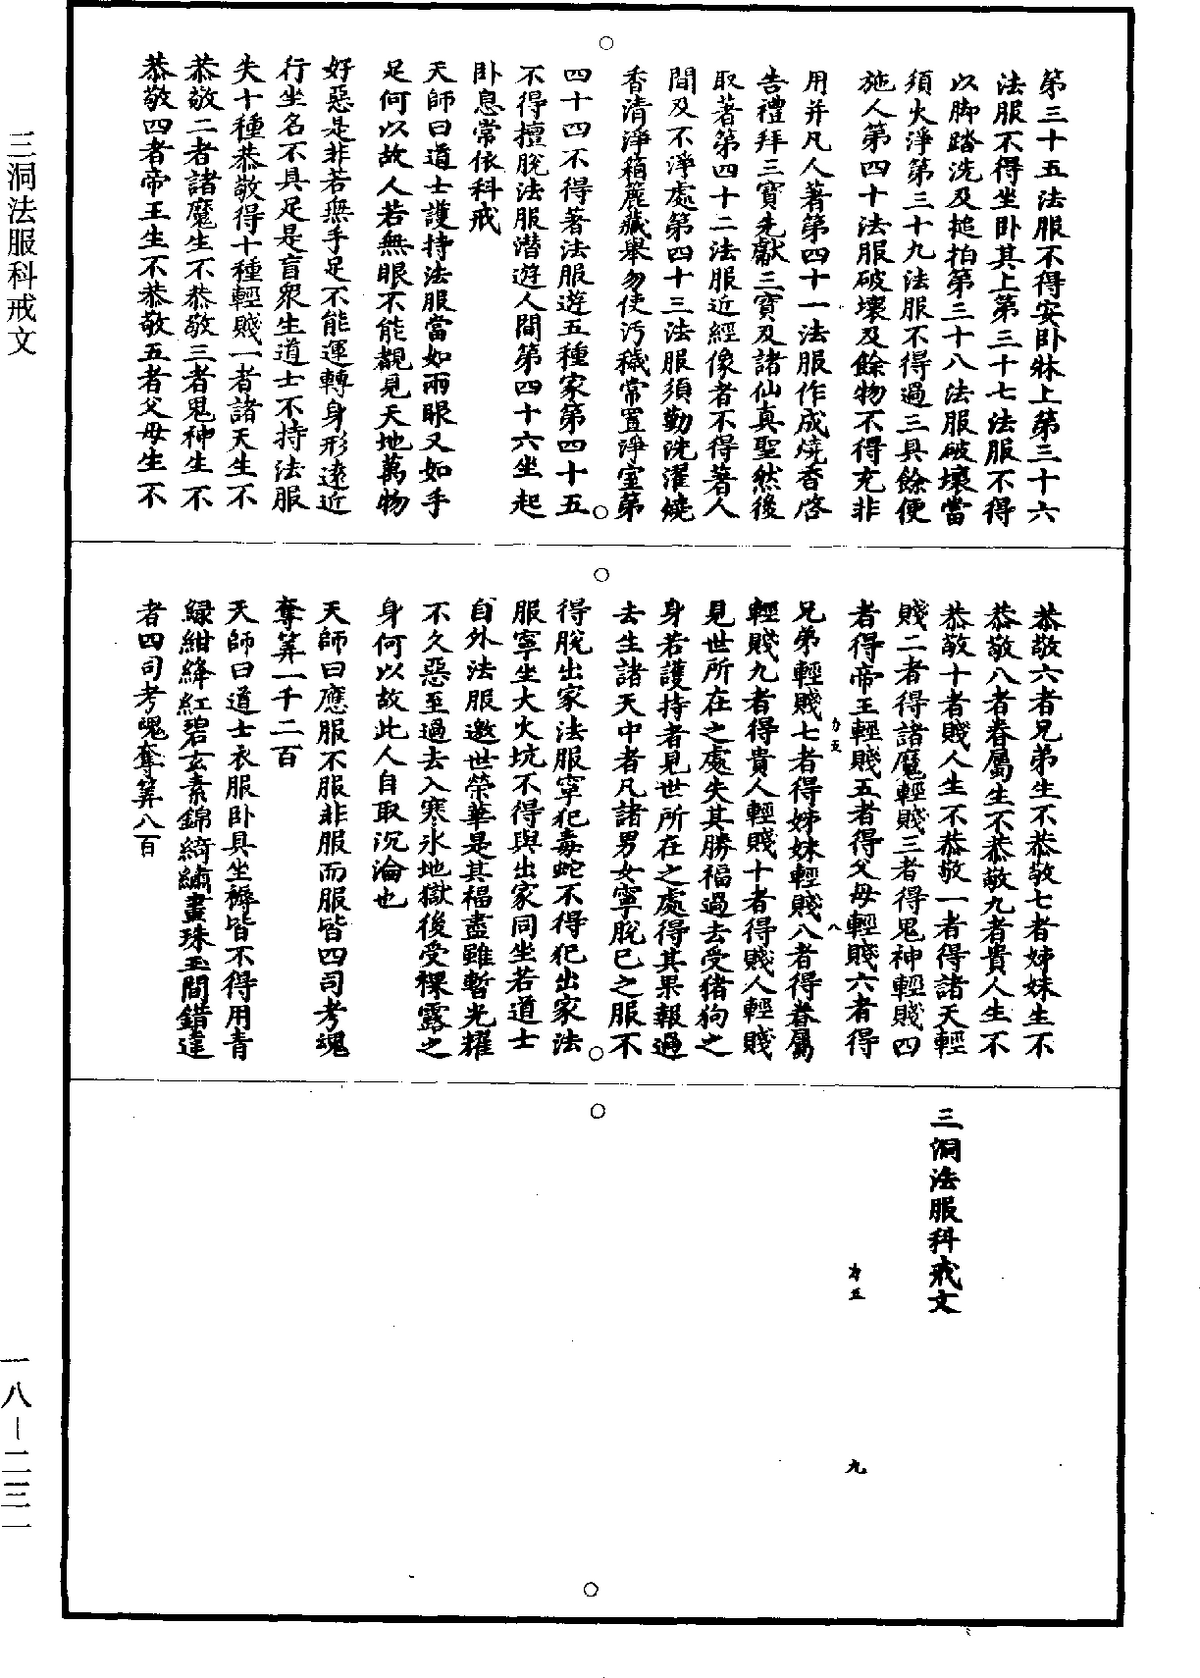 第三十五法服不得安卧牀上第三十六
法服不得坐卧其上第三十七法服不得
以脚踏洗及搥拍第三十八法服破壞當
須火淨第三十九法服不得過三具餘便
施人第四十法服破壞及餘物不得充非
用并凡人著第四十一法服作成燒香啓
告禮拜三寶先獻三寶及諸仙真聖然後
取著第四十二法服近經像者不得著人
間及不淨處第四十三法服須勤洗濯燒
香清淨箱簏藏舉勿使污穢常置淨室第
四十四不得著法服遊五種家第四十五
不得擅脫法服潜遊人間第四十六坐起
卧息常依科戒
天師曰道士護持法服當如兩眼又如手
足何以故人若無眼不能覩見天地萬物
好惡是非若無手足不能運轉身形遠近
行坐名不具足是盲衆生道士不持法服
失十種恭敬得十種輕賤一者諸天生不
恭敬二者諸魔生不恭敬三者鬼神生不
恭敬四者帝王生不恭敬五者父母生不
恭敬六者兄弟生不恭敬七者姊妹生不
恭敬八者眷屬生不恭敬九者貴人生不
恭敬十者賤人生不恭敬一者得諸天輕
賤二者得諸魔輕賤三者得鬼神輕賤四
者得帝王輕賤五者得父母輕賤六者得
力五
八
兄弟輕賤七者得姊妹輕賤八者得眷屬
輕賤九者得貴人輕賤十者得賤人輕賤
見世所在之處失其勝福過去受猪狗之
身若護持者見世所在之處得其果報過
去生諸天中者凡諸男女寧脫已之服不
得脫出家法服寧犯毒蛇不得犯出家法
服寧坐大火坑不得與出家同坐若道士
自外法服邀世榮華是其福盡雖暫光耀
不久惡至過去入寒氷地獄後受裸露之
身何以故此人自取沉淪也
天師曰應服不服非服而服皆四司考魂
奪筭一千二百
天師曰道士衣服卧具坐褥皆不得用青
緑紺絳紅碧玄素錦綺繡畫珠玉間錯違
者四司考魂奪筭八百
三洞法服科戒文
力五
九
三洞法服科戒文
一八—二三一